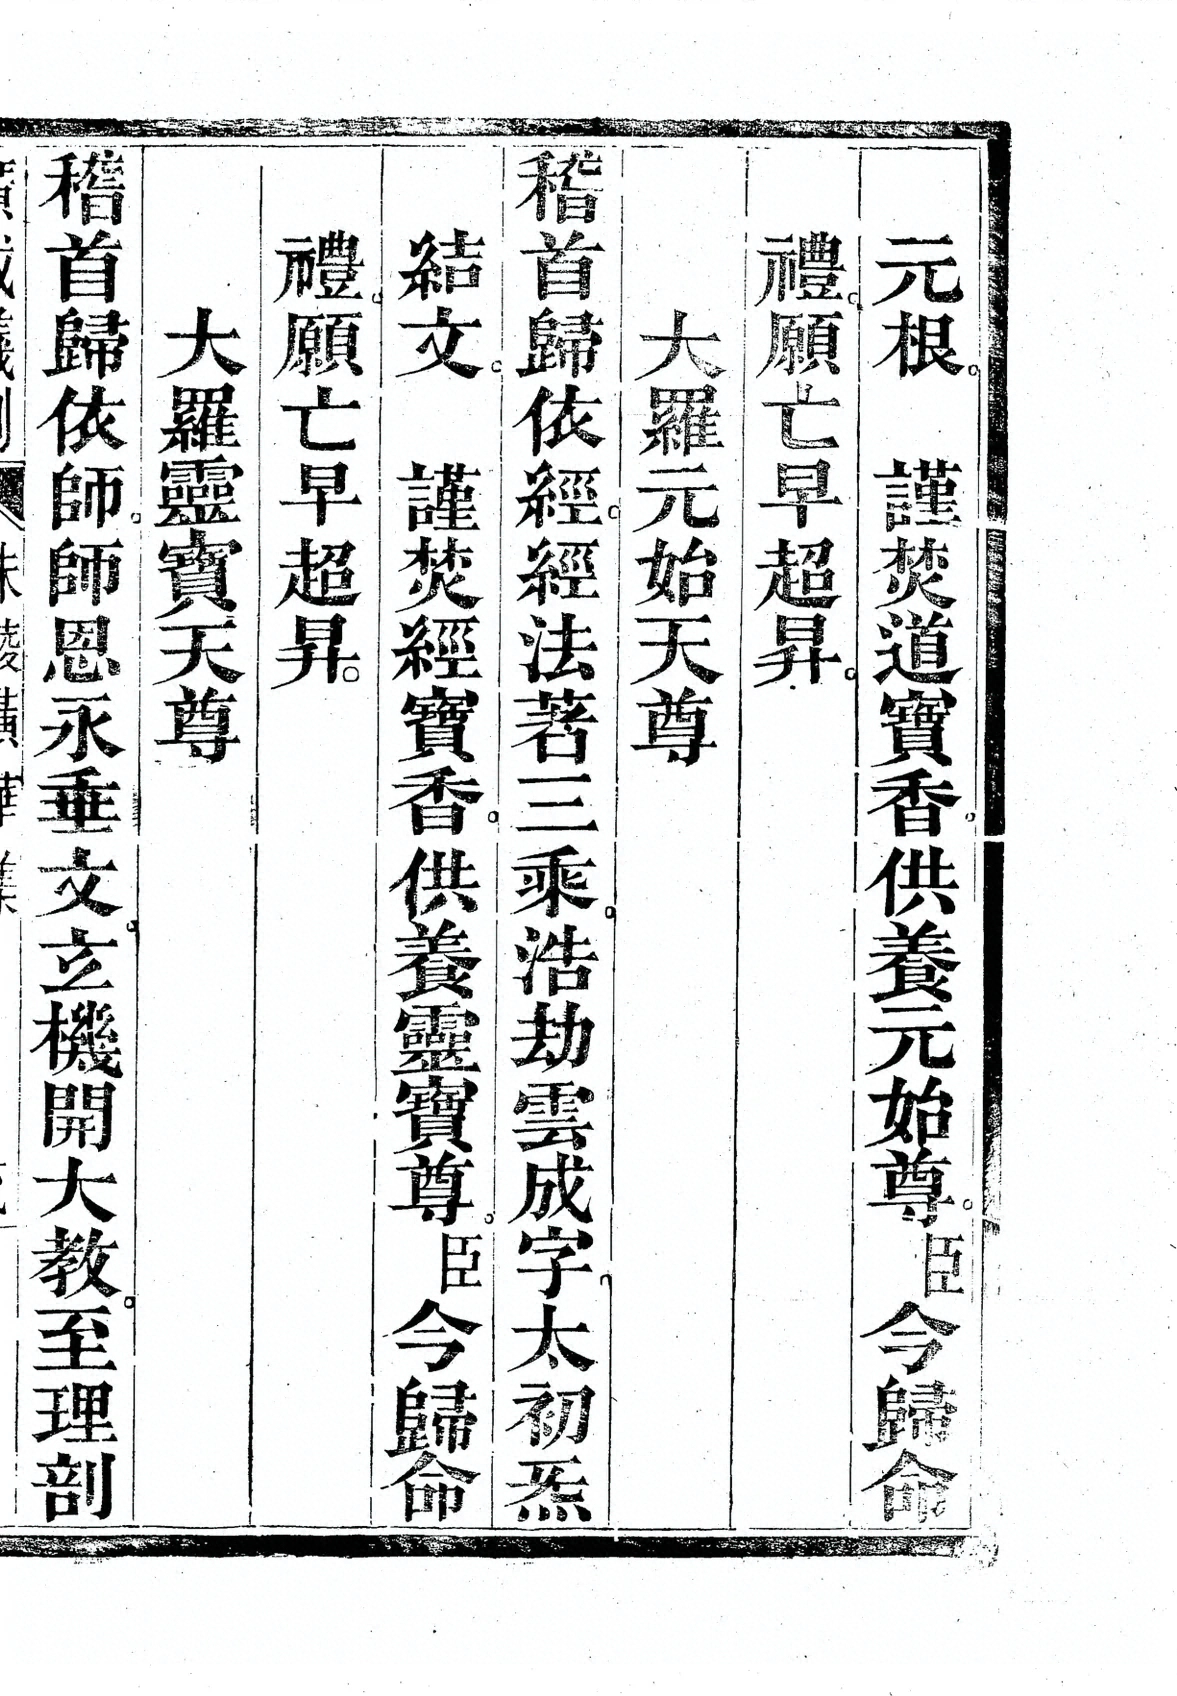 元根。　謹焚道寶香。供養元始尊。臣今歸命
禮。願亡早超昇。
大羅元始天尊
稽首歸依經。經法著三乘。浩劫雲成字。太初炁
結文。　謹焚經寶香。供養靈寶尊。臣今歸命
禮。願亡早超昇。
大羅靈寶天尊
稽首歸依師。師恩永垂文。立機開大教。至理剖